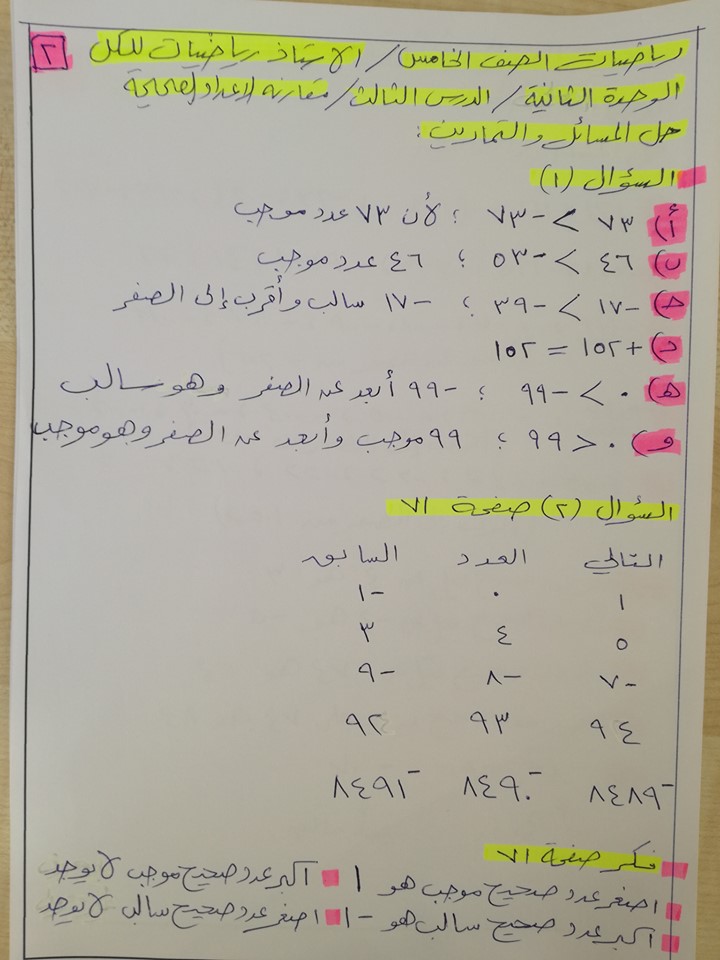 رياضيات الصف الخامس / الاستاذ رياضيات للكل ٢
الوحدة الثانية / الدرس الثالث / مقارنه الاعداد الصحيحة
حل المسائل والتمارين :
السؤال (١)
أ) ٧٣ > -٧٣ ؛ لأن ٧٣ عدد موجب
ب) ٤٦ > -٥٣ ؛ ٤٦ عدد موجب
ج) -١٧ > -٣٩ ؛ -١٧ سالب وأقرب إلى الصفر
د) +١٥٢ = ١٥٢
ه) ٠ > -٩٩ ؛ -٩٩ أبعد عن الصفر وهو سالب
و) ٠ < ٩٩ ؛ ٩٩ موجب وأبعد عن الصفر وهو موجب
السؤال (٢) صفحة ٧١
التالي العدد السابق
١ ٠ -١
٥ ٤ ٣
-٧ -٨ -٩
٩٤ ٩٣ ٩٢
-٨٤٨٩ -٨٤٩٠ -٨٤٩١
فكر صفحة ٧١
اصغر عدد صحيح موجب هو ١ اكبر عدد صحيح موجب لا يوجد
اكبر عدد صحيح سالب هو -١ اصغر عدد صحيح سالب لا يوجد